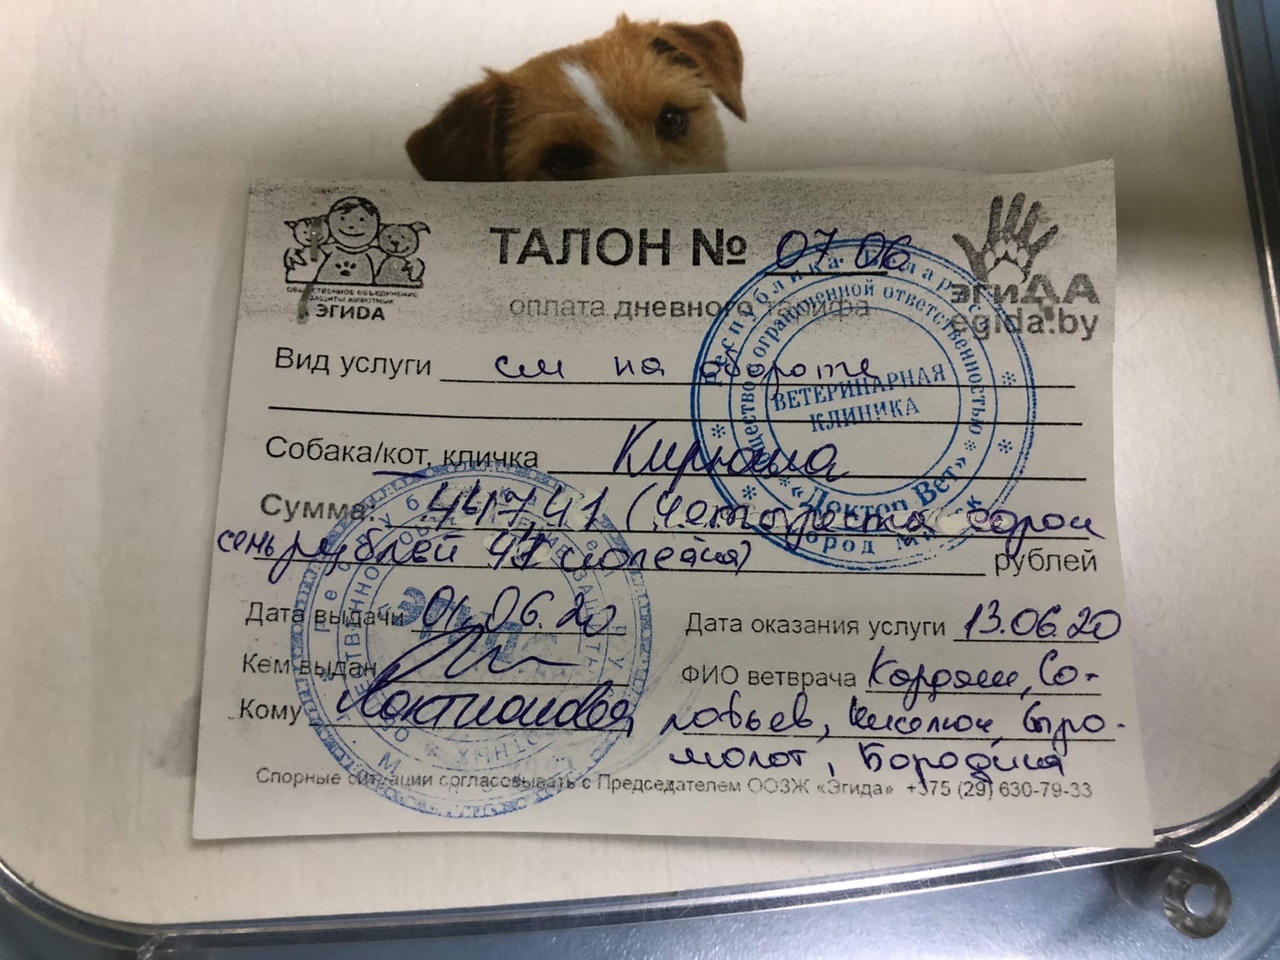 ТАЛОН № 07 06
оплата дневного тарифа
ОБЩЕСТВЕННОЕ ОБЪЕДИНЕНИЕ
ЗАЩИТЫ ЖИВОТНЫХ
ЭГИDA
эгиДА
egida.by
Вид услуги см на обороте
Собака/кот, кличка Кирюша
Сумма: 447 41 (Четыреста сорок
семь рублей 41 копейка) рублей
Дата выдачи 01.06.20
Дата оказания услуги 13.06.20
Кем выдан
ФИО ветврача Кардаш, Со-
Кому Локтионовой
ловьев, Киселюк, Сыро-
молот, Бородина
Спорные ситуации согласовывать с Председателем ООЗЖ «Эгида» +375 (29) 630-79-33
Республика Беларусь
Общество с ограниченной ответственностью
ВЕТЕРИНАРНАЯ
КЛИНИКА
«Доктор Вет»
город Минск